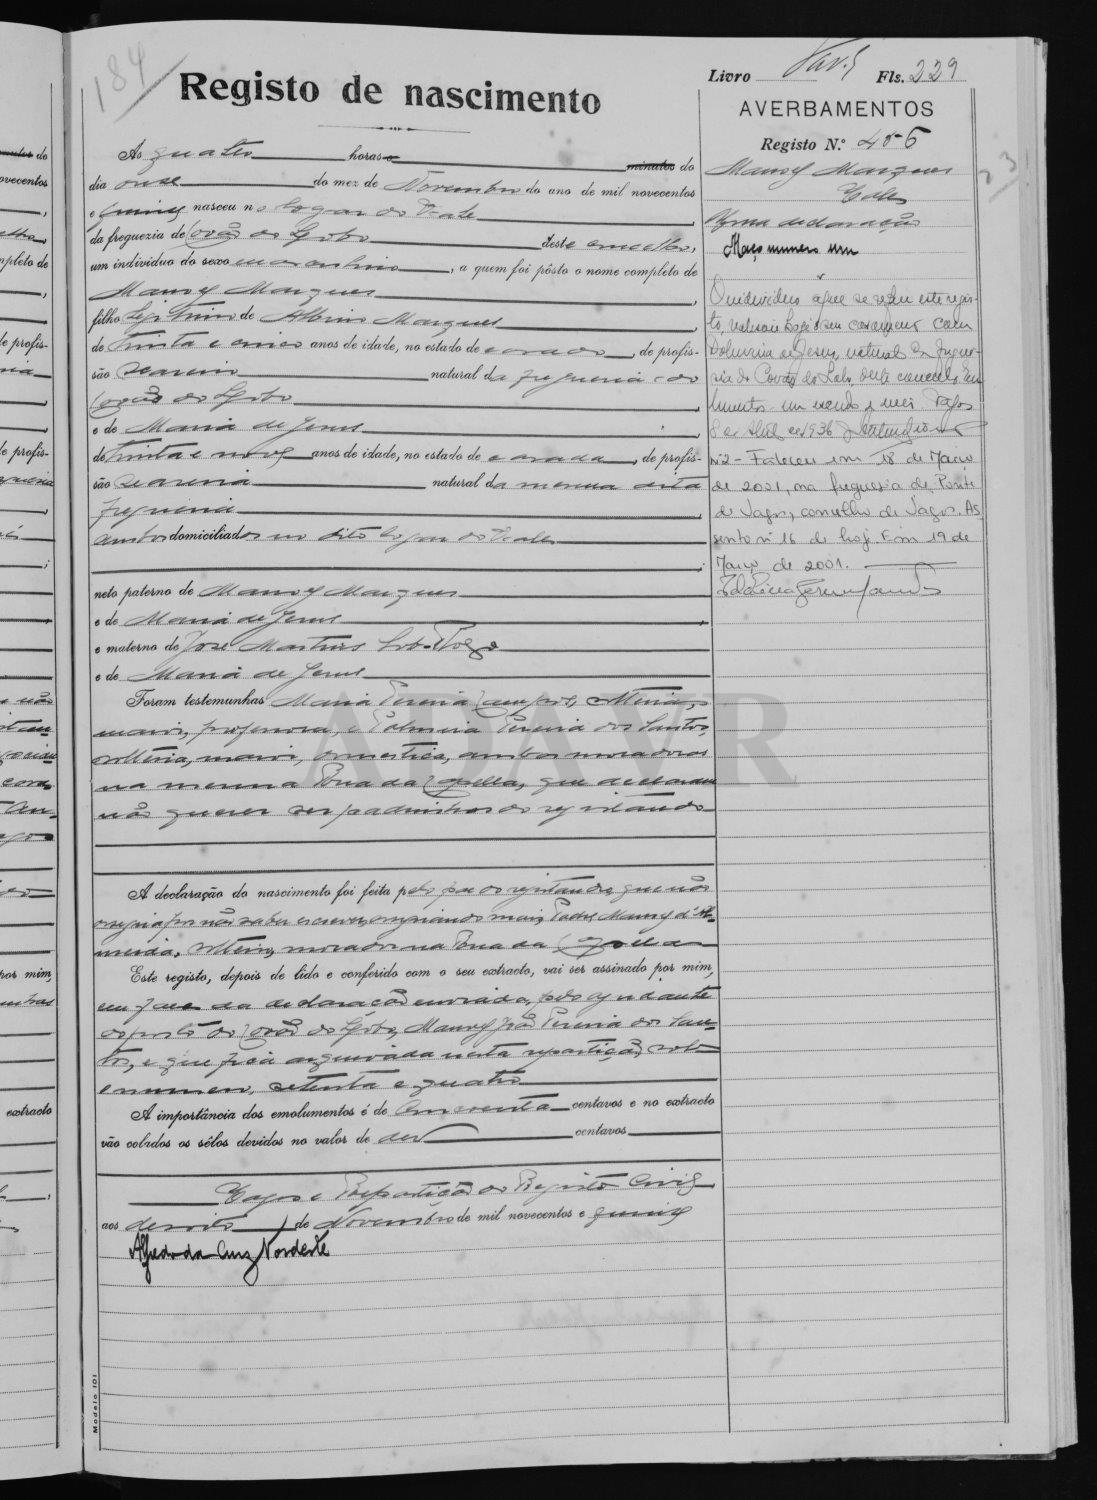 184
Registo de nascimento
Às quatro horas e minutos do
dia onze do mez de Novembro do ano de mil novecentos
e quinze nasceu no logar de
da freguezia de Covão do Lobo deste concelho,
um individuo do sexo masculino, a quem foi pôsto o nome completo de
Manoel Marques,
filho legitimo de Albino Marques
de trinta e cinco anos de idade, no estado de casado, de profis-
são seareiro natural da freguesia do
Covão do Lobo,
e de Maria de Jesus,
de trinta e nove anos de idade, no estado de casada, de profis-
são seareira natural da mesma dita
freguesia
ambos domiciliados no dito logar de
neto paterno de Manoel Marques
e de Maria de Jesus,
e materno de José Martins
e de Maria de Jesus
Foram testemunhas Maria Pereira Campos, solteira,
maior, professora, e Palmira Pereira dos Santos,
solteira, maior, domestica, ambas moradoras
na mesma Rua da Capella, que declararam
não querer ser padrinhos do registando
A declaração do nascimento foi feita pelo pae do registando, que não
assigna por não saber escrever, assignando mais, Padre Manoel d'Al-
meida, solteiro, morador na Rua da Capella
Este registo, depois de lido e conferido com o seu extracto, vai ser assinado por mim,
em face da declaração enviada, pelo ajudante
do posto do Covão do Lobo, Manoel João Pereira dos San-
tos, e que fica arquivada nesta repartição sob
o numero, setenta e quatro
A importância dos emolumentos é de cincoenta centavos e no extracto
vão colados os sêlos devidos no valor de dez centavos
Vagos e Repartição do Registo Civil
aos dezoito de Novembro de mil novecentos e quinze
Alfredo da Cruz Nordeste
Modelo 101
Livro Fls. 229
AVERBAMENTOS
Registo N.º 456
Manoel Marques
Uma declaração
Maço numero um
O individuo a que se refere este regis-
to, realisou hoje o seu casamento com
de Jesus, natural da fregue-
sia do Covão do Lobo deste concelho.
Vagos
8 de Abril de 1936
Nº 2 - Faleceu em 18 de Março
de 2001, na freguesia de Ponte
de Vagos, concelho de Vagos. As-
sento nº 16 de hoje. Em 19 de
Março de 2001.
ADAVR